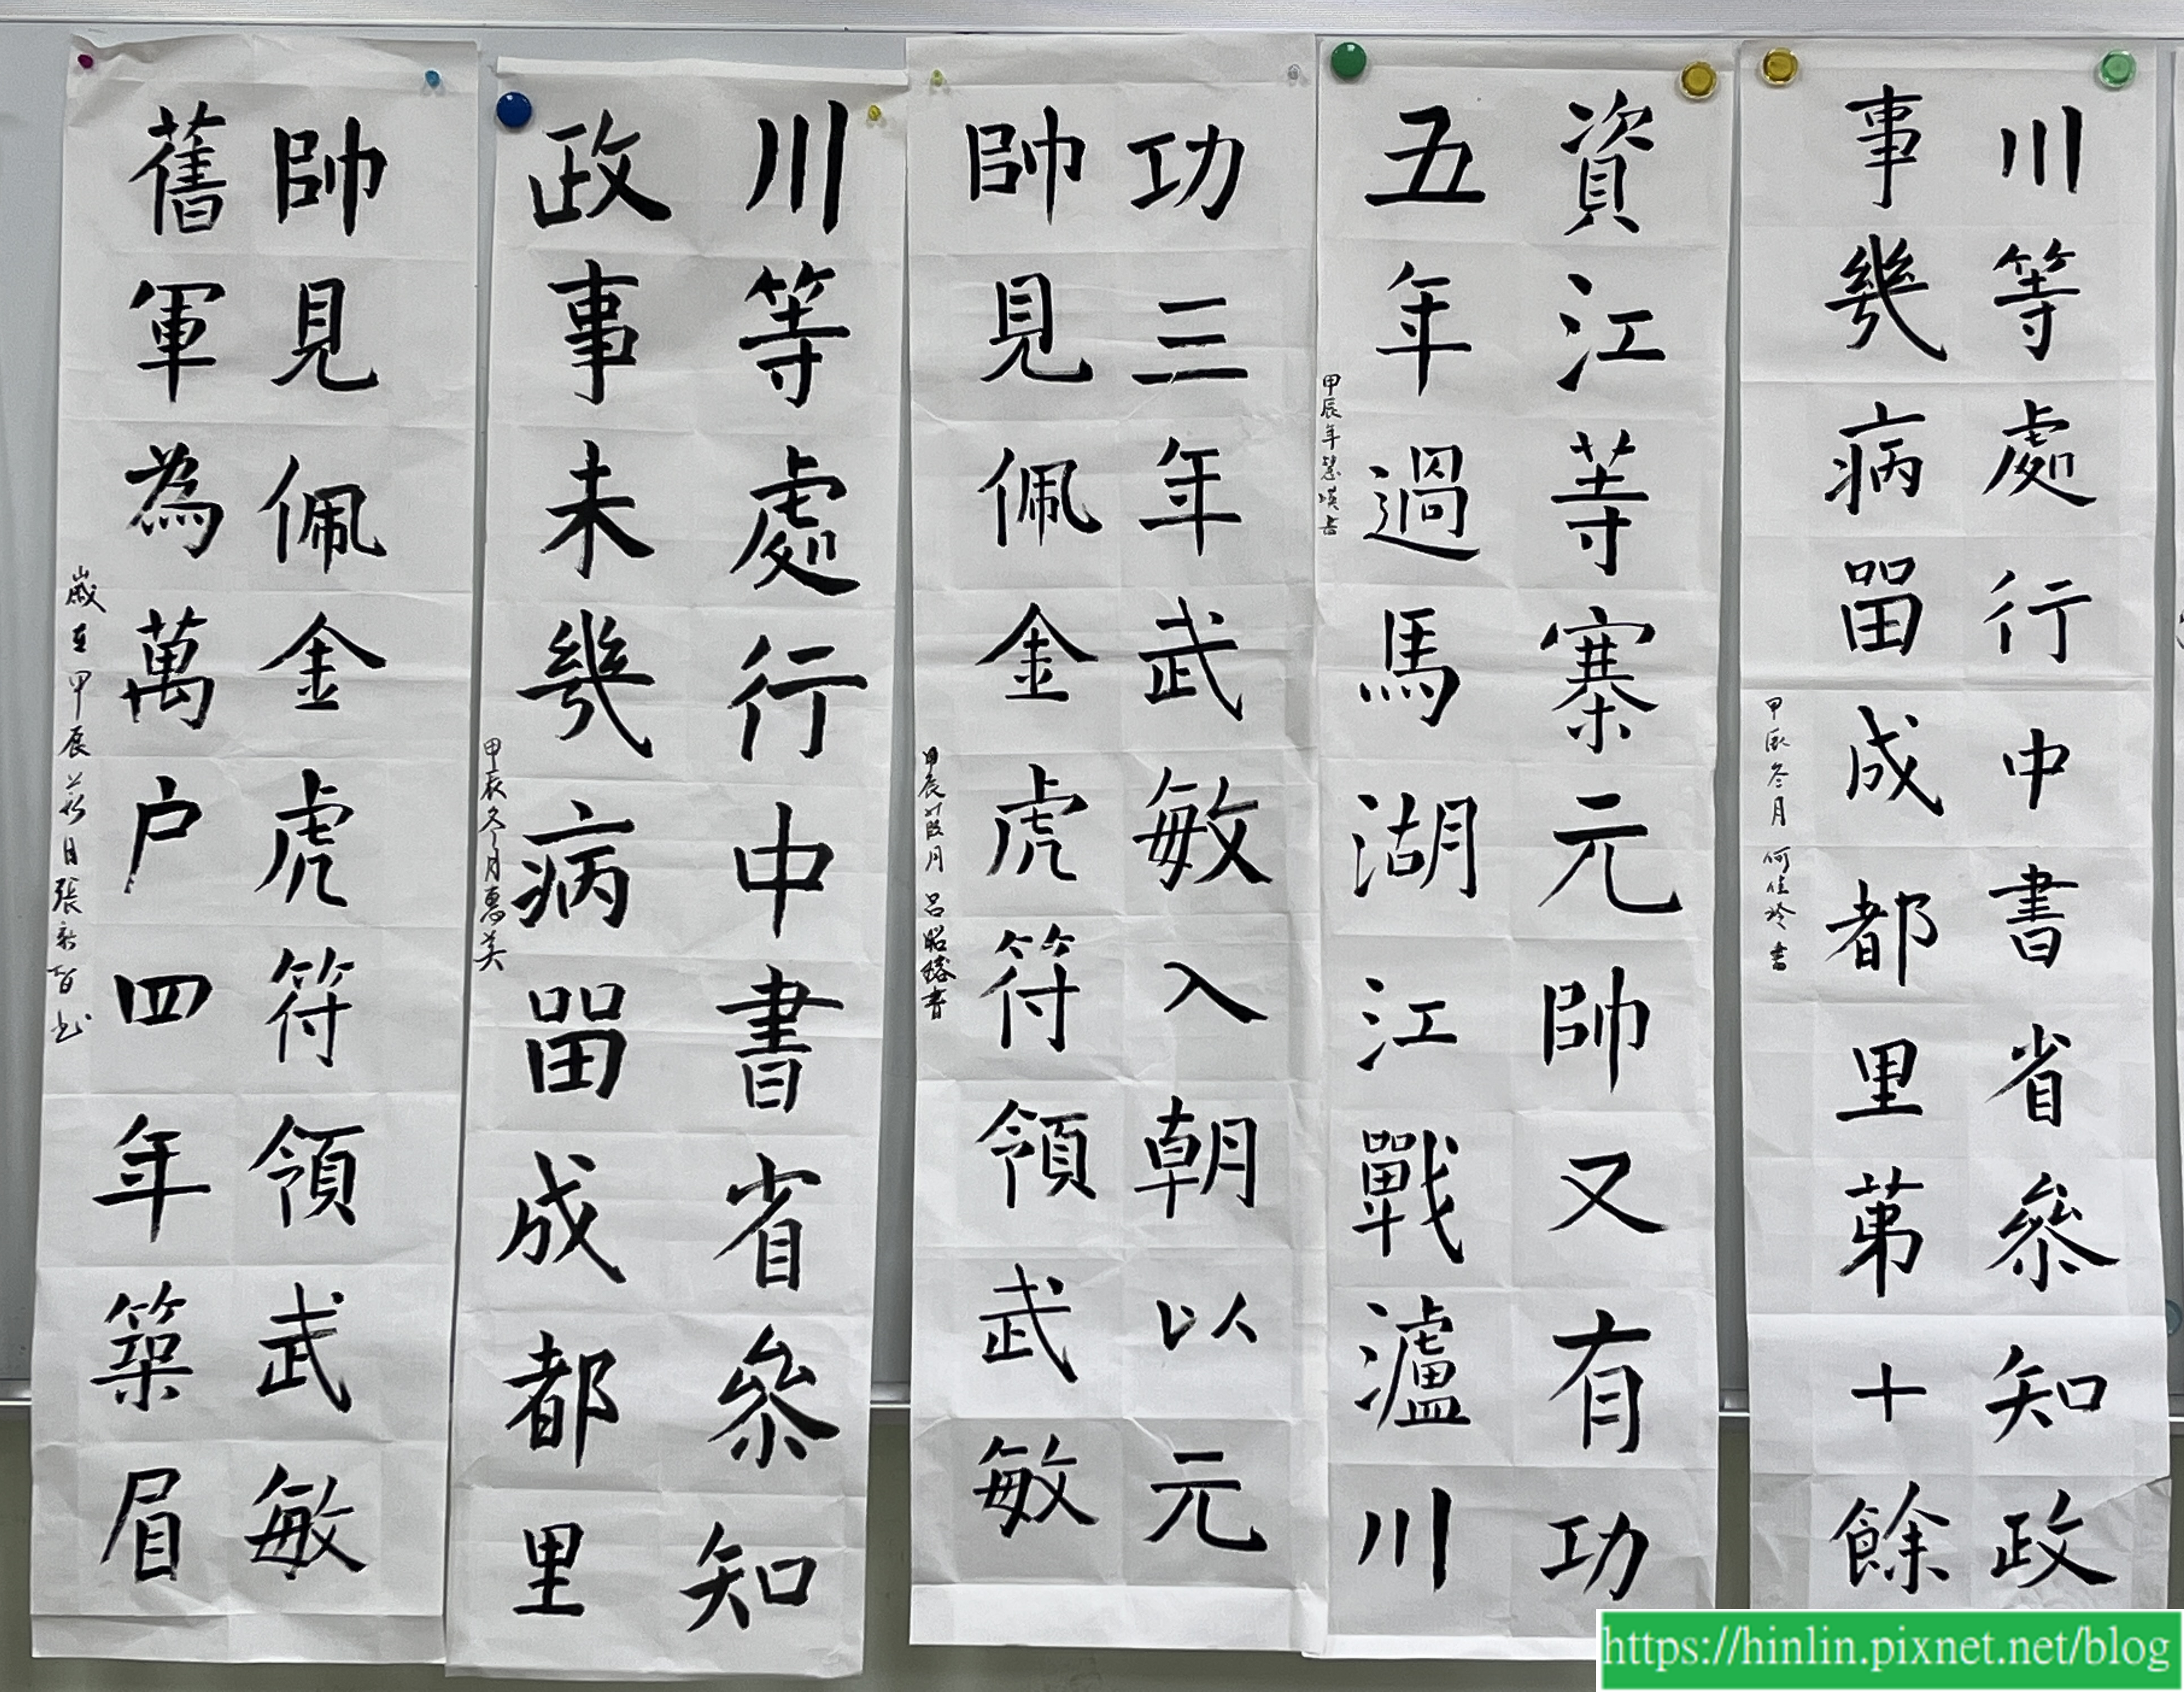 川等處行中書省參知政
事幾病畱成都里苐十餘
甲辰冬月 何佳玲書
資江苐寨元帥又有功
五年過馬湖江戰瀘川
甲辰年慧瑛書
功三年武敏入朝以元
帥見佩金虎符領武敏
甲辰葭月 呂昭
川等處行中書省參知
政事未幾病畱成都里
甲辰冬月惠美
帥見佩金虎符領武敏
舊軍為萬户四年築眉
歲在甲辰 日張新智书
https://hinlin.pixnet.net/blog